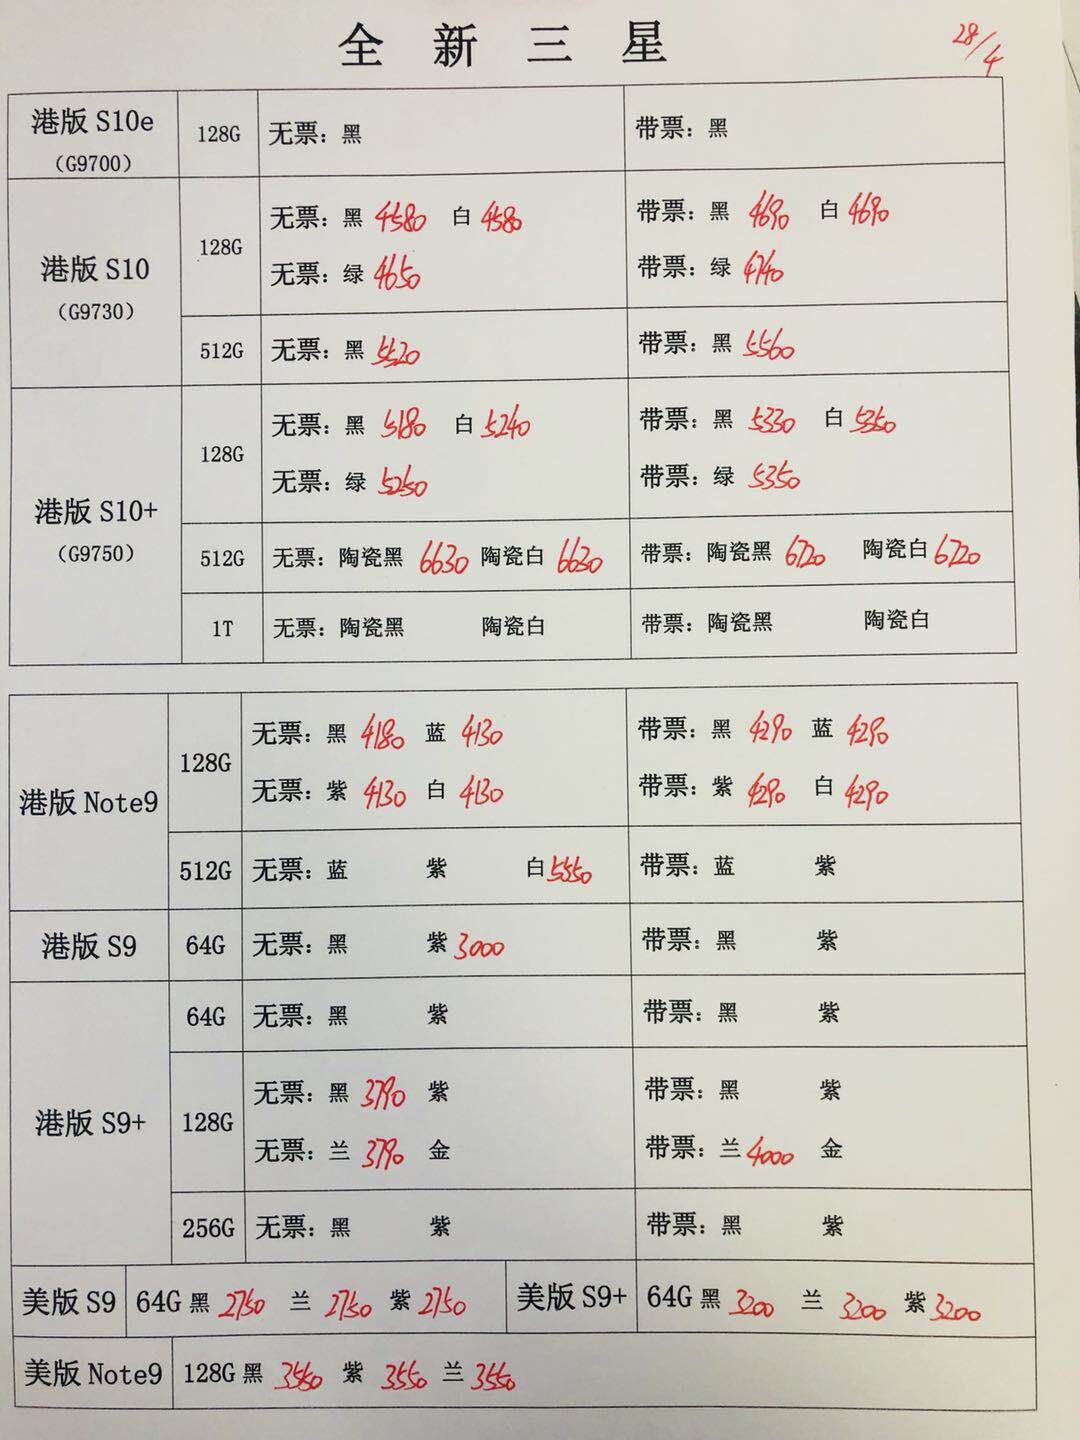 全 新 三 星
28/4
港版 S10e
(G9700)
128G
无票：黑
带票：黑
港版 S10
(G9730)
128G
无票：黑 4580 白 4580
无票：绿 4650
带票：黑 4690 白 4690
带票：绿 4740
512G
无票：黑 5520
带票：黑 5560
港版 S10+
(G9750)
128G
无票：黑 5180 白 5240
无票：绿 5250
带票：黑 5330 白 5350
带票：绿 5350
512G
无票：陶瓷黑 6630 陶瓷白 6630
带票：陶瓷黑 6720 陶瓷白 6720
1T
无票：陶瓷黑 陶瓷白
带票：陶瓷黑 陶瓷白
港版 Note9
128G
无票：黑 4180 蓝 4130
无票：紫 4130 白 4130
带票：黑 4290 蓝 4290
带票：紫 4290 白 4290
512G
无票：蓝 紫 白 5550
带票：蓝 紫
港版 S9
64G
无票：黑 紫 3000
带票：黑 紫
港版 S9+
64G
无票：黑 紫
带票：黑 紫
128G
无票：黑 3790 紫
无票：兰 3790 金
带票：黑 紫
带票：兰 4000 金
256G
无票：黑 紫
带票：黑 紫
美版 S9
64G 黑 2750 兰 2750 紫 2750
美版 S9+
64G 黑 3200 兰 3200 紫 3200
美版 Note9
128G 黑 3560 紫 3550 兰 3550